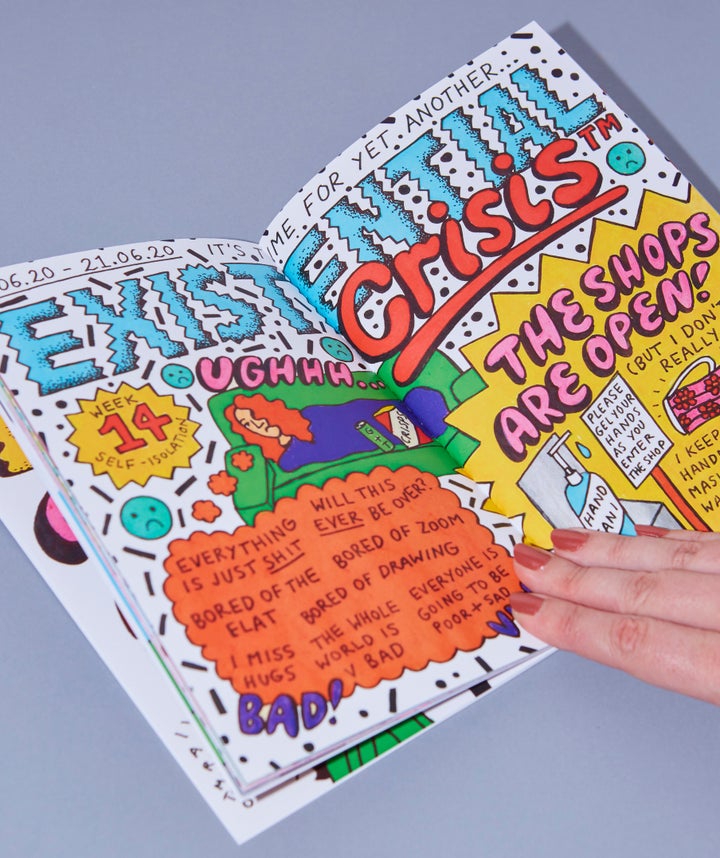 06.20 - 21.06.20
IT'S TIME FOR YET ANOTHER...
EXISTENTIAL
Crisis™
WEEK
14
SELF-ISOLATION
UGHHH...
G+T
CRISPS
EVERYTHING
IS JUST SHIT
WILL THIS
EVER BE OVER?
BORED OF THE
FLAT
BORED OF ZOOM
BORED OF DRAWING
I MISS
HUGS
THE WHOLE
WORLD IS
V BAD
EVERYONE IS
GOING TO BE
POOR + SAD
BAD!
THE SHOPS
ARE OPEN!
(BUT I DON'T
REALLY
PLEASE
GEL YOUR
HANDS
AS YOU
ENTER
THE SHOP
HAND
SANI
I KEEP